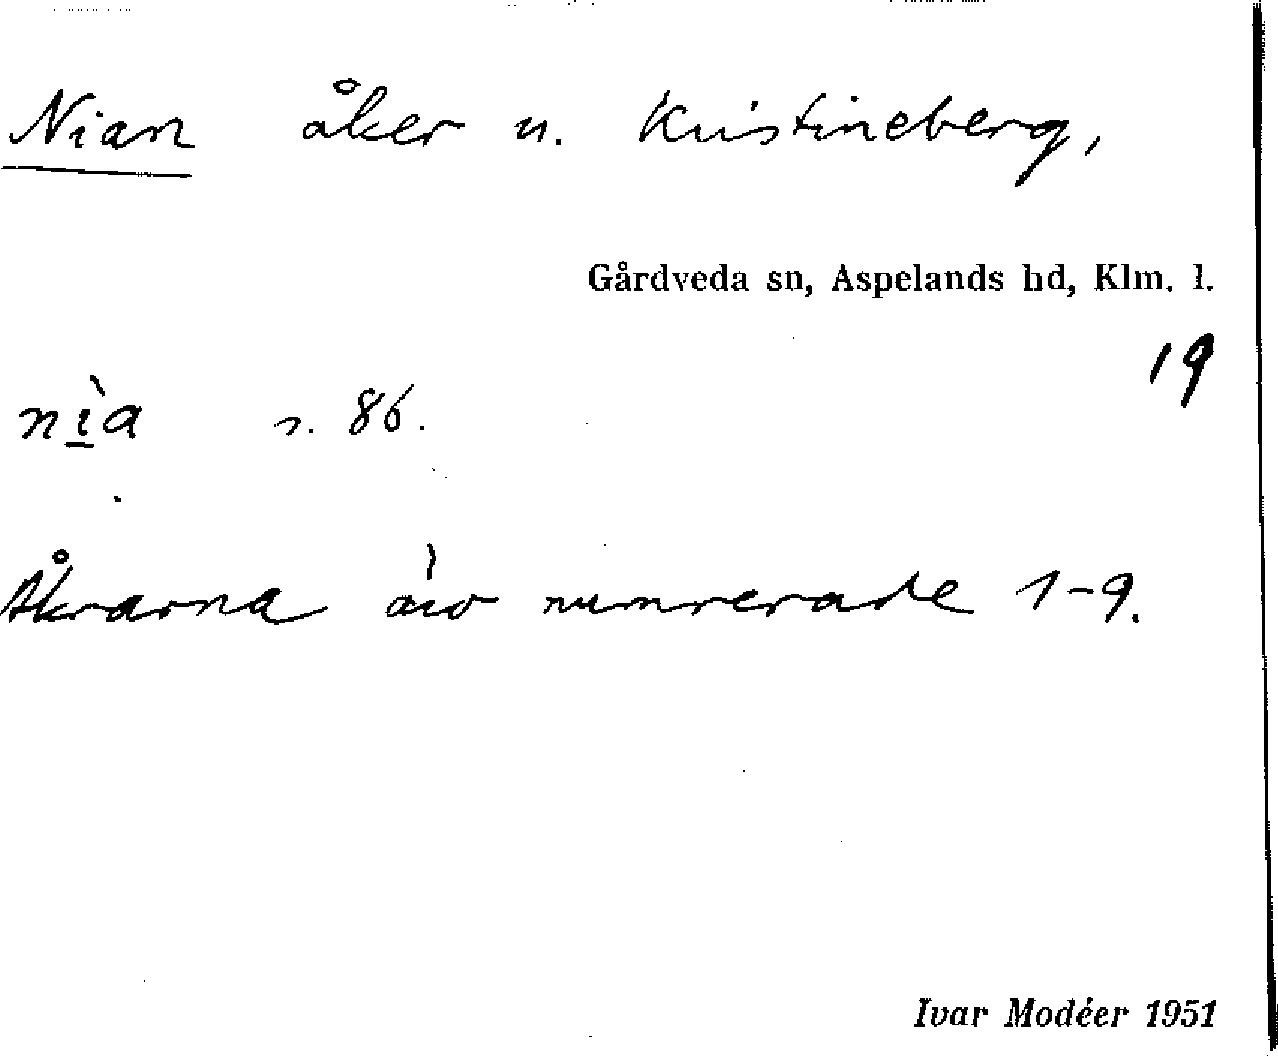 Nian åker u. Kristineberg,
Gårdveda sn, Aspelands hd, Klm. l.
19
nì̲a s. 86.
Åkrarna äro numrerade 1-9.
Ivar Modéer 1951